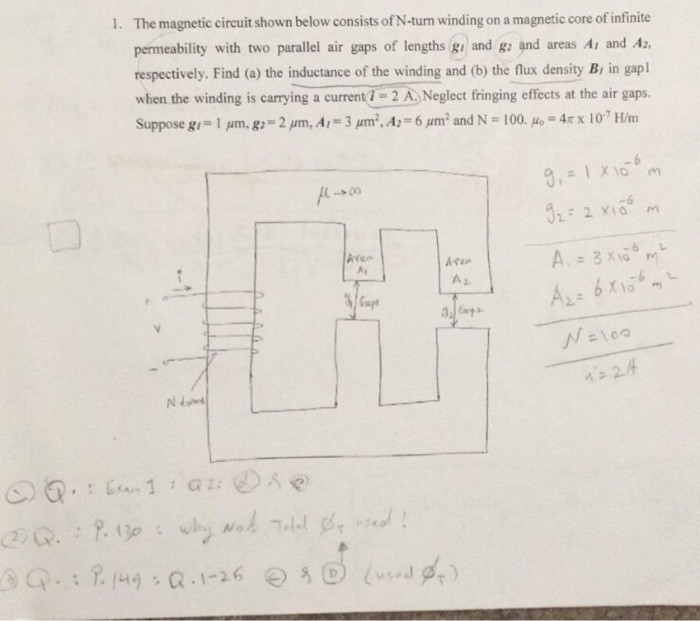 1. The magnetic circuit shown below consists of N-turn winding on a magnetic core of infinite
permeability with two parallel air gaps of lengths g₁ and g₂ and areas A₁ and A₂,
respectively. Find (a) the inductance of the winding and (b) the flux density B₁ in gap1
when the winding is carrying a current i = 2 A. Neglect fringing effects at the air gaps.
Suppose g₁ = 1 μm, g₂ = 2 μm, A₁ = 3 μm², A₂ = 6 μm² and N = 100. μ₀ = 4π x 10⁻⁷ H/m
μ→∞
g₁ = 1 × 10⁻⁶ m
g₂ = 2 × 10⁻⁶ m
A₁ = 3 × 10⁻⁶ m²
A₂ = 6 × 10⁻⁶ m²
N = 100
i = 2A
Area
A₁
Area
A₂
g₁ Gap1
g₂ Gap2
i
+
V
-
N turns
① Q. : Exam 1 : Q2: ⓓ & ⓔ
② Q. : P. 130 : why not Total Φ_T used!
③ Q. : P. 149 : Q. 1-25 & Ⓓ (used Φ_T)